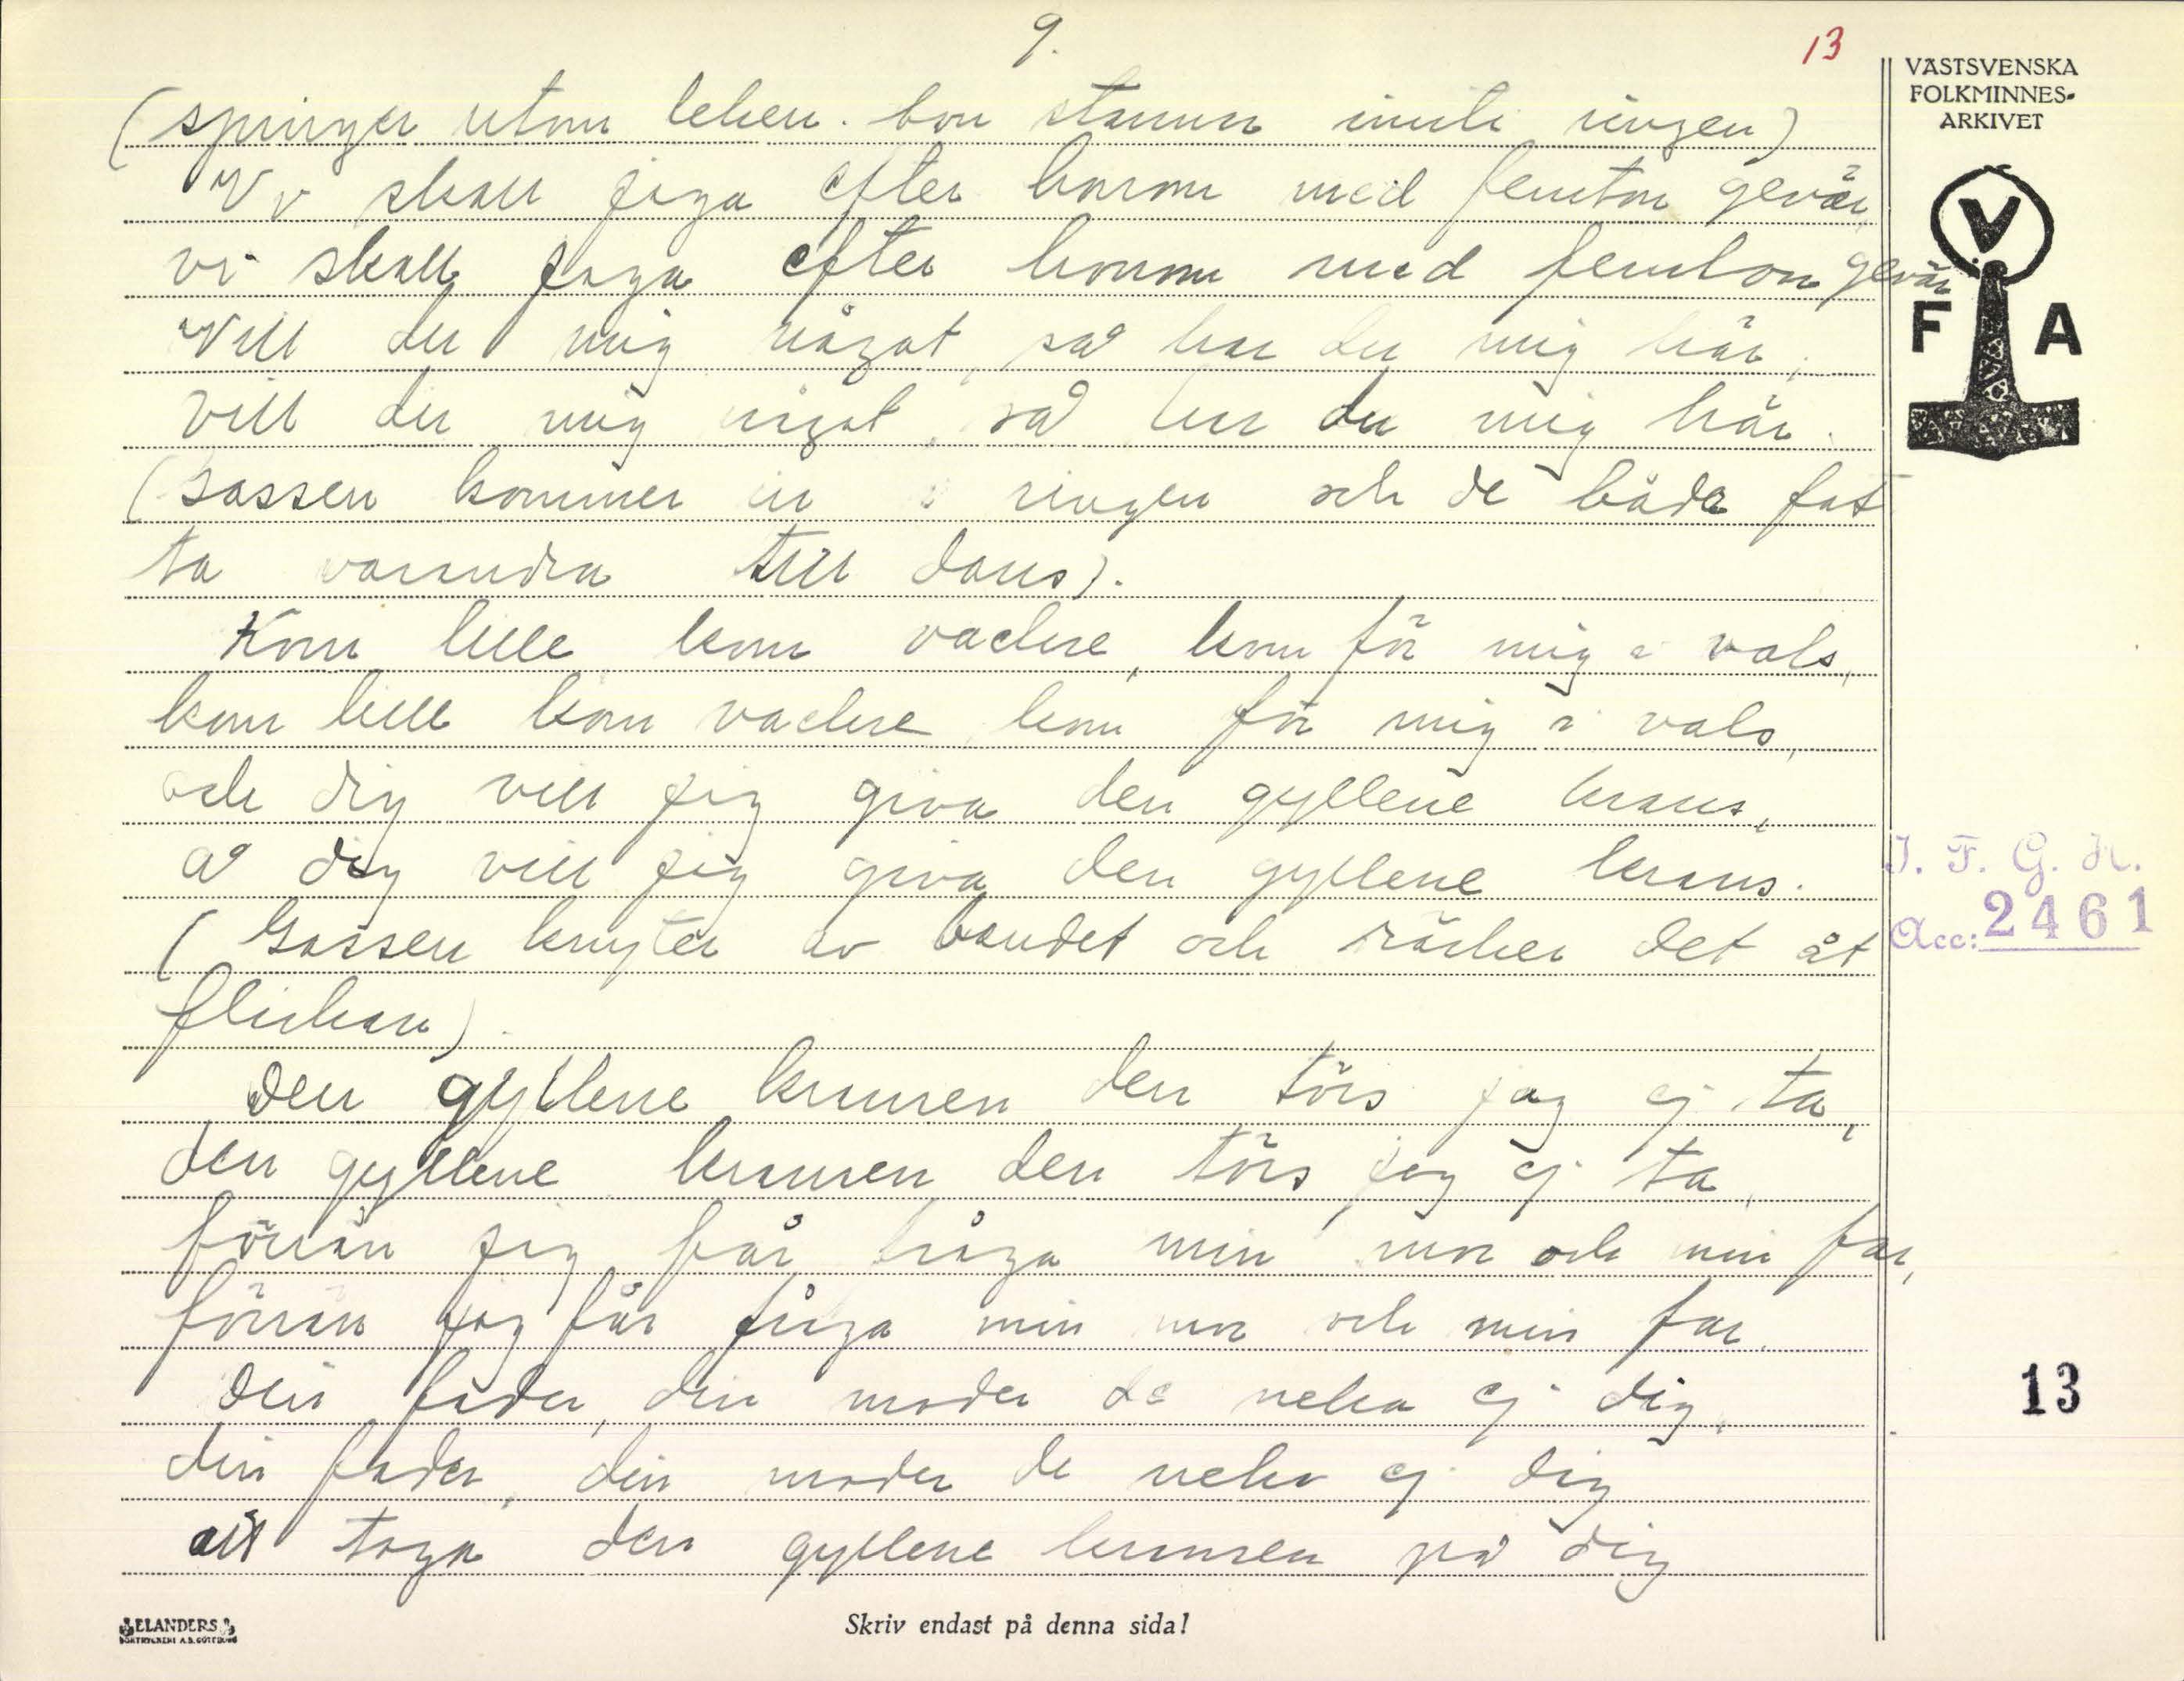 9.
13
VÄSTSVENSKA
FOLKMINNES-
ARKIVET
(springer utom leken. hon stannar inuti ringen)
Vi skall jaga efter honom med femton gevär,
vi skall jaga efter honom med femton gevär
V
F A
Vill du mig något, så har du mig här,
vill du mig något, så har du mig här.
(Gossen kommer in i ringen och de båda fat
ta varandra till dans).
Kom lille kom vackre, kom för mig i vals,
kom lille kom vackre, kom för mig i vals,
och dig vill jag giva den gyllene krans,
å dig vill jag giva den gyllene krans.
I. F. G. H.
Acc: 2461
(Gossen knyter av bandet och räcker det åt
flickan).
Den gyllene kransen den törs jag ej ta,
den gyllene kransen den törs jag ej ta,
förrän jag får fråga min mor och min far,
förrän jag får fråga min mor och min far.
Din fader, din moder de neka ej dig,
13
din fader, din moder de neka ej dig
att taga den gyllene kransen på dig
ELANDERS
BOKTRYCKERI A.B. GÖTEBORG
Skriv endast på denna sida!